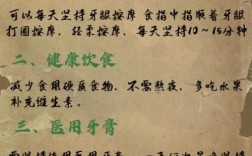 可以每天坚持牙龈按摩 食指中指顺着牙龈
打圈按摩，轻柔按摩，每天坚持10~15分钟
二、健康饮食
减少食用硬质食物，不需熬夜，多吃水果
补充维生素。
三、医用牙膏